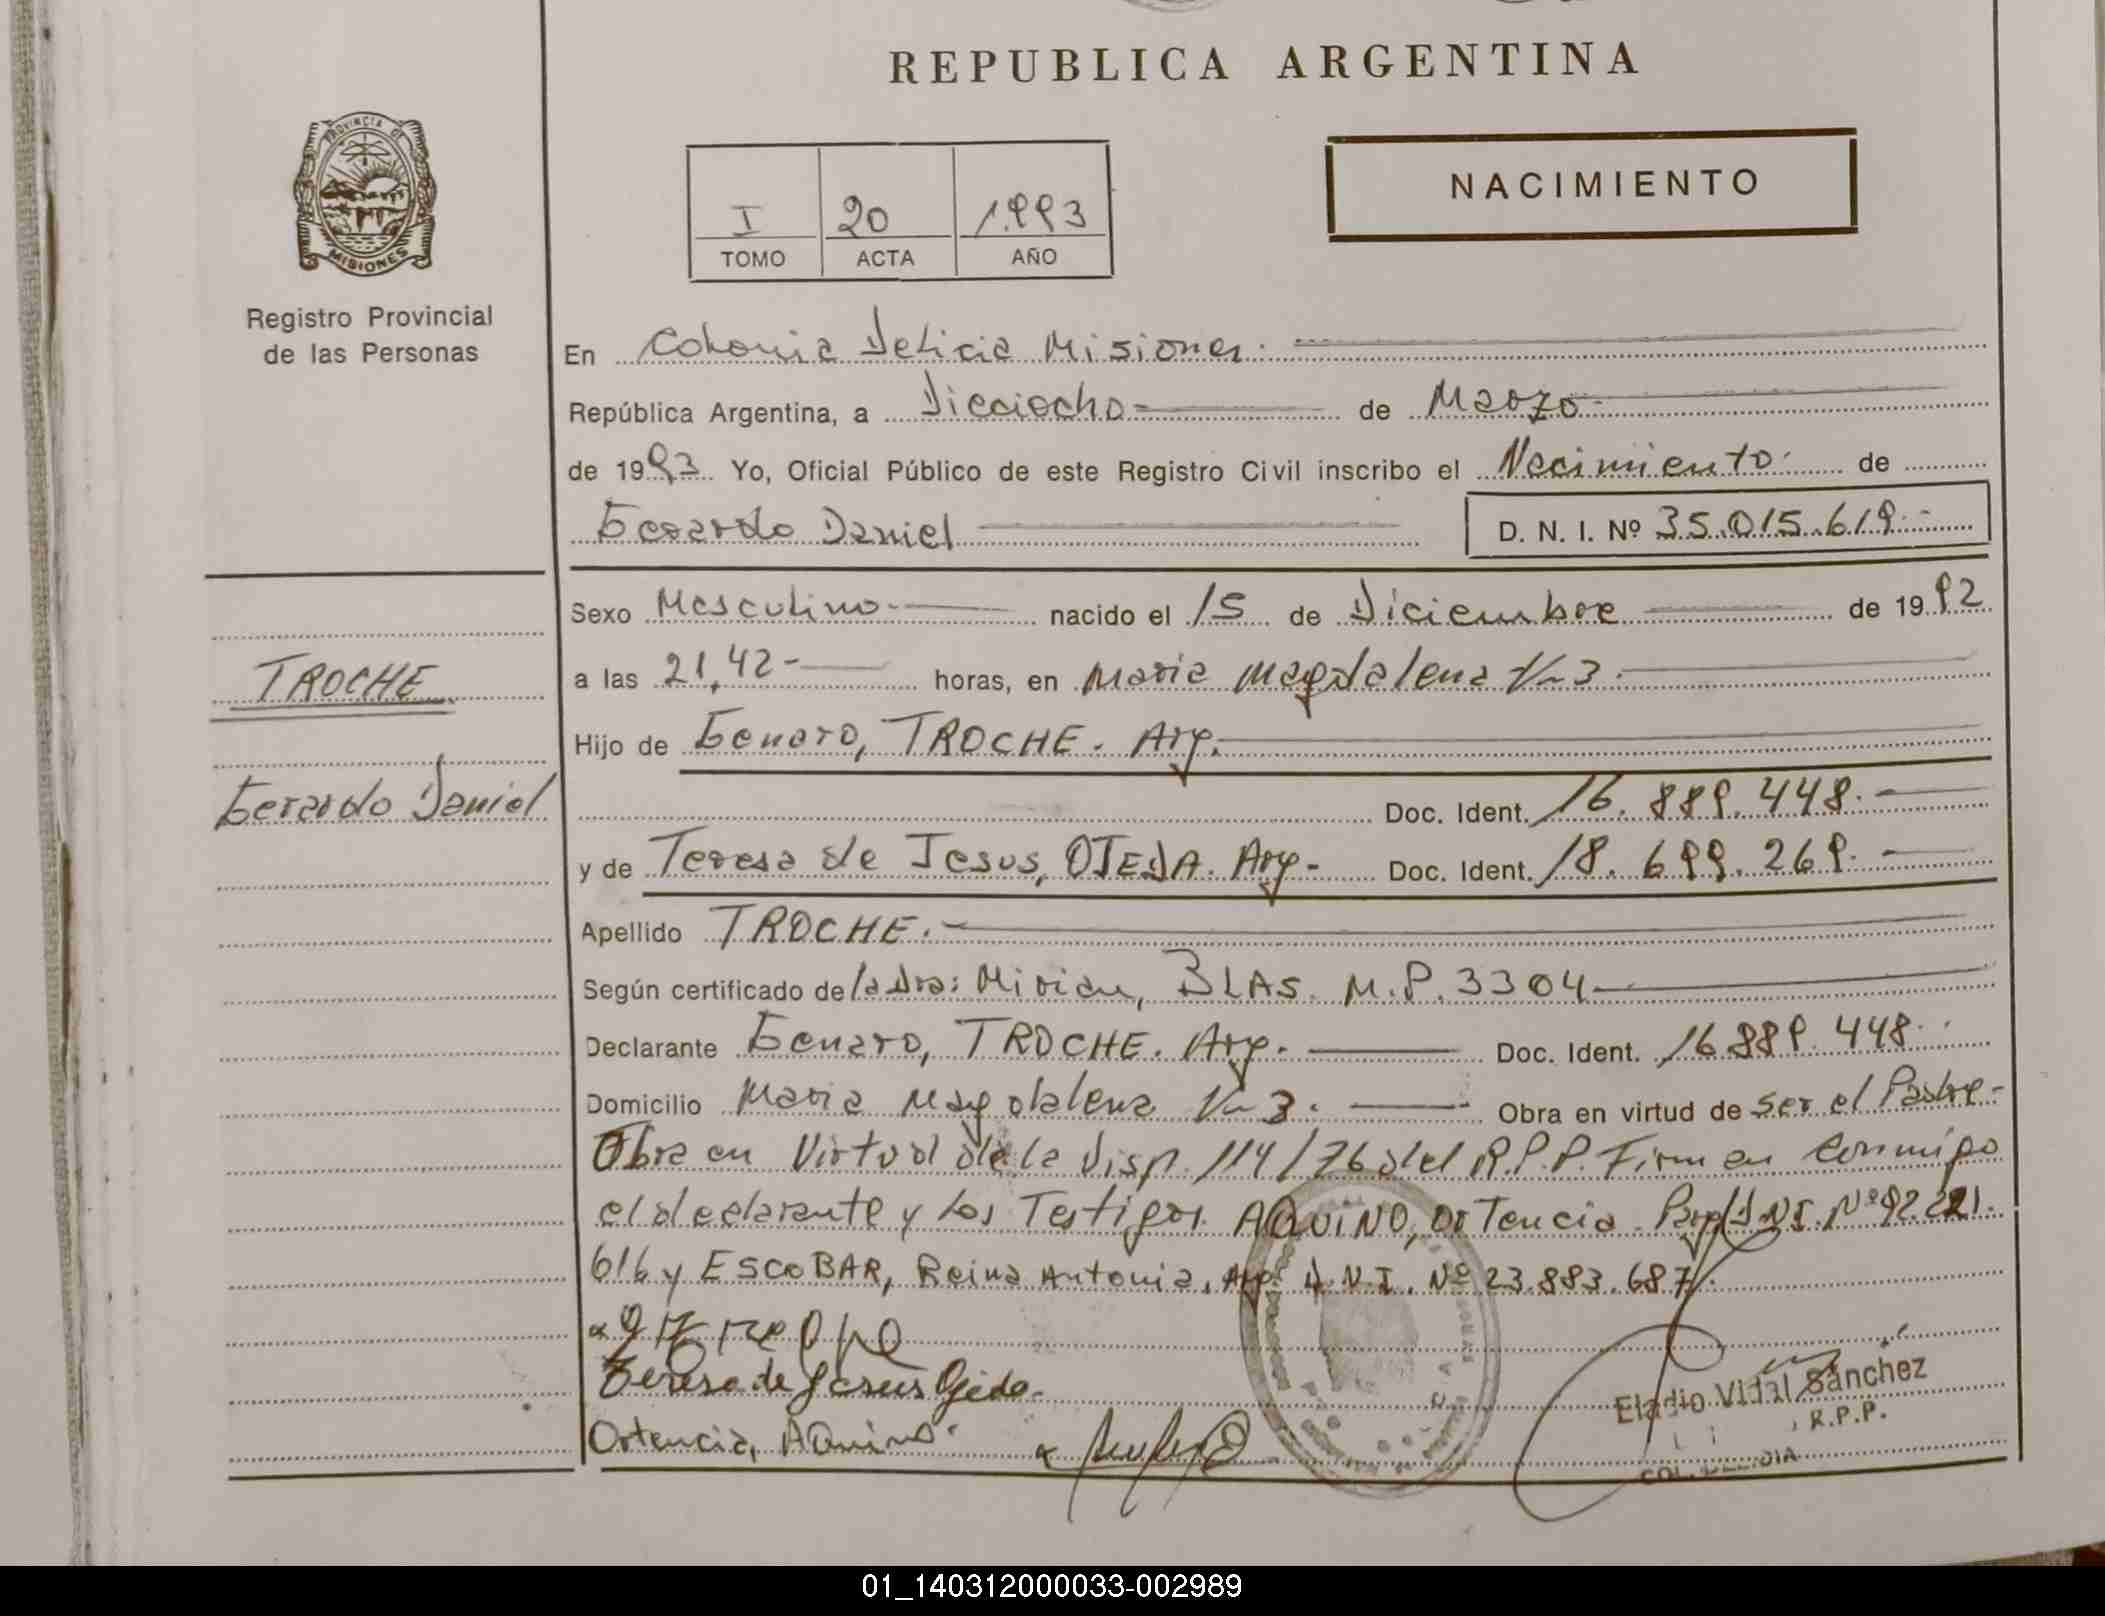 REPUBLICA ARGENTINA
PROVINCIA DE
MISIONES
Registro Provincial
de las Personas
I 20 1.993
TOMO ACTA AÑO
NACIMIENTO
En Colonia Delicia Misiones.
República Argentina, a Dieciocho de Marzo
de 1993 Yo, Oficial Público de este Registro Civil inscribo el Nacimiento de
Gerardo Daniel D. N. I. Nº 35.015.619
TROCHE
Gerardo Daniel
Sexo Masculino nacido el 15 de Diciembre de 1992
a las 21,42 horas, en Maria Magdalena Km 3
Hijo de Genaro, TROCHE. Arg.
Doc. Ident. 16.889.448.
y de Teresa de Jesus, OJEDA. Arg- Doc. Ident. 18.699.269.
Apellido TROCHE.
Según certificado de la Dra: Mirian, BLAS. M.P. 3304
Declarante Genaro, TROCHE. Arg. Doc. Ident. 16.889.448
Domicilio Maria Magdalena Km 3. Obra en virtud de ser el Padre-
Obra en Virtud de la Disp. 114/76 del R.P.P. Firman conmigo
el declarante y los Testigos AQUINO, Ortencia Parg/D.N.I. Nº 92.221.
616 y ESCOBAR, Reina Antonia, Arg. D.N.I. Nº 23.883.687.
Teresa de Jesus Ojeda.
Ortencia, Aquino.
Eladio Vidal Sánchez
R.P.P.
COL. DELICIA
01_140312000033-002989